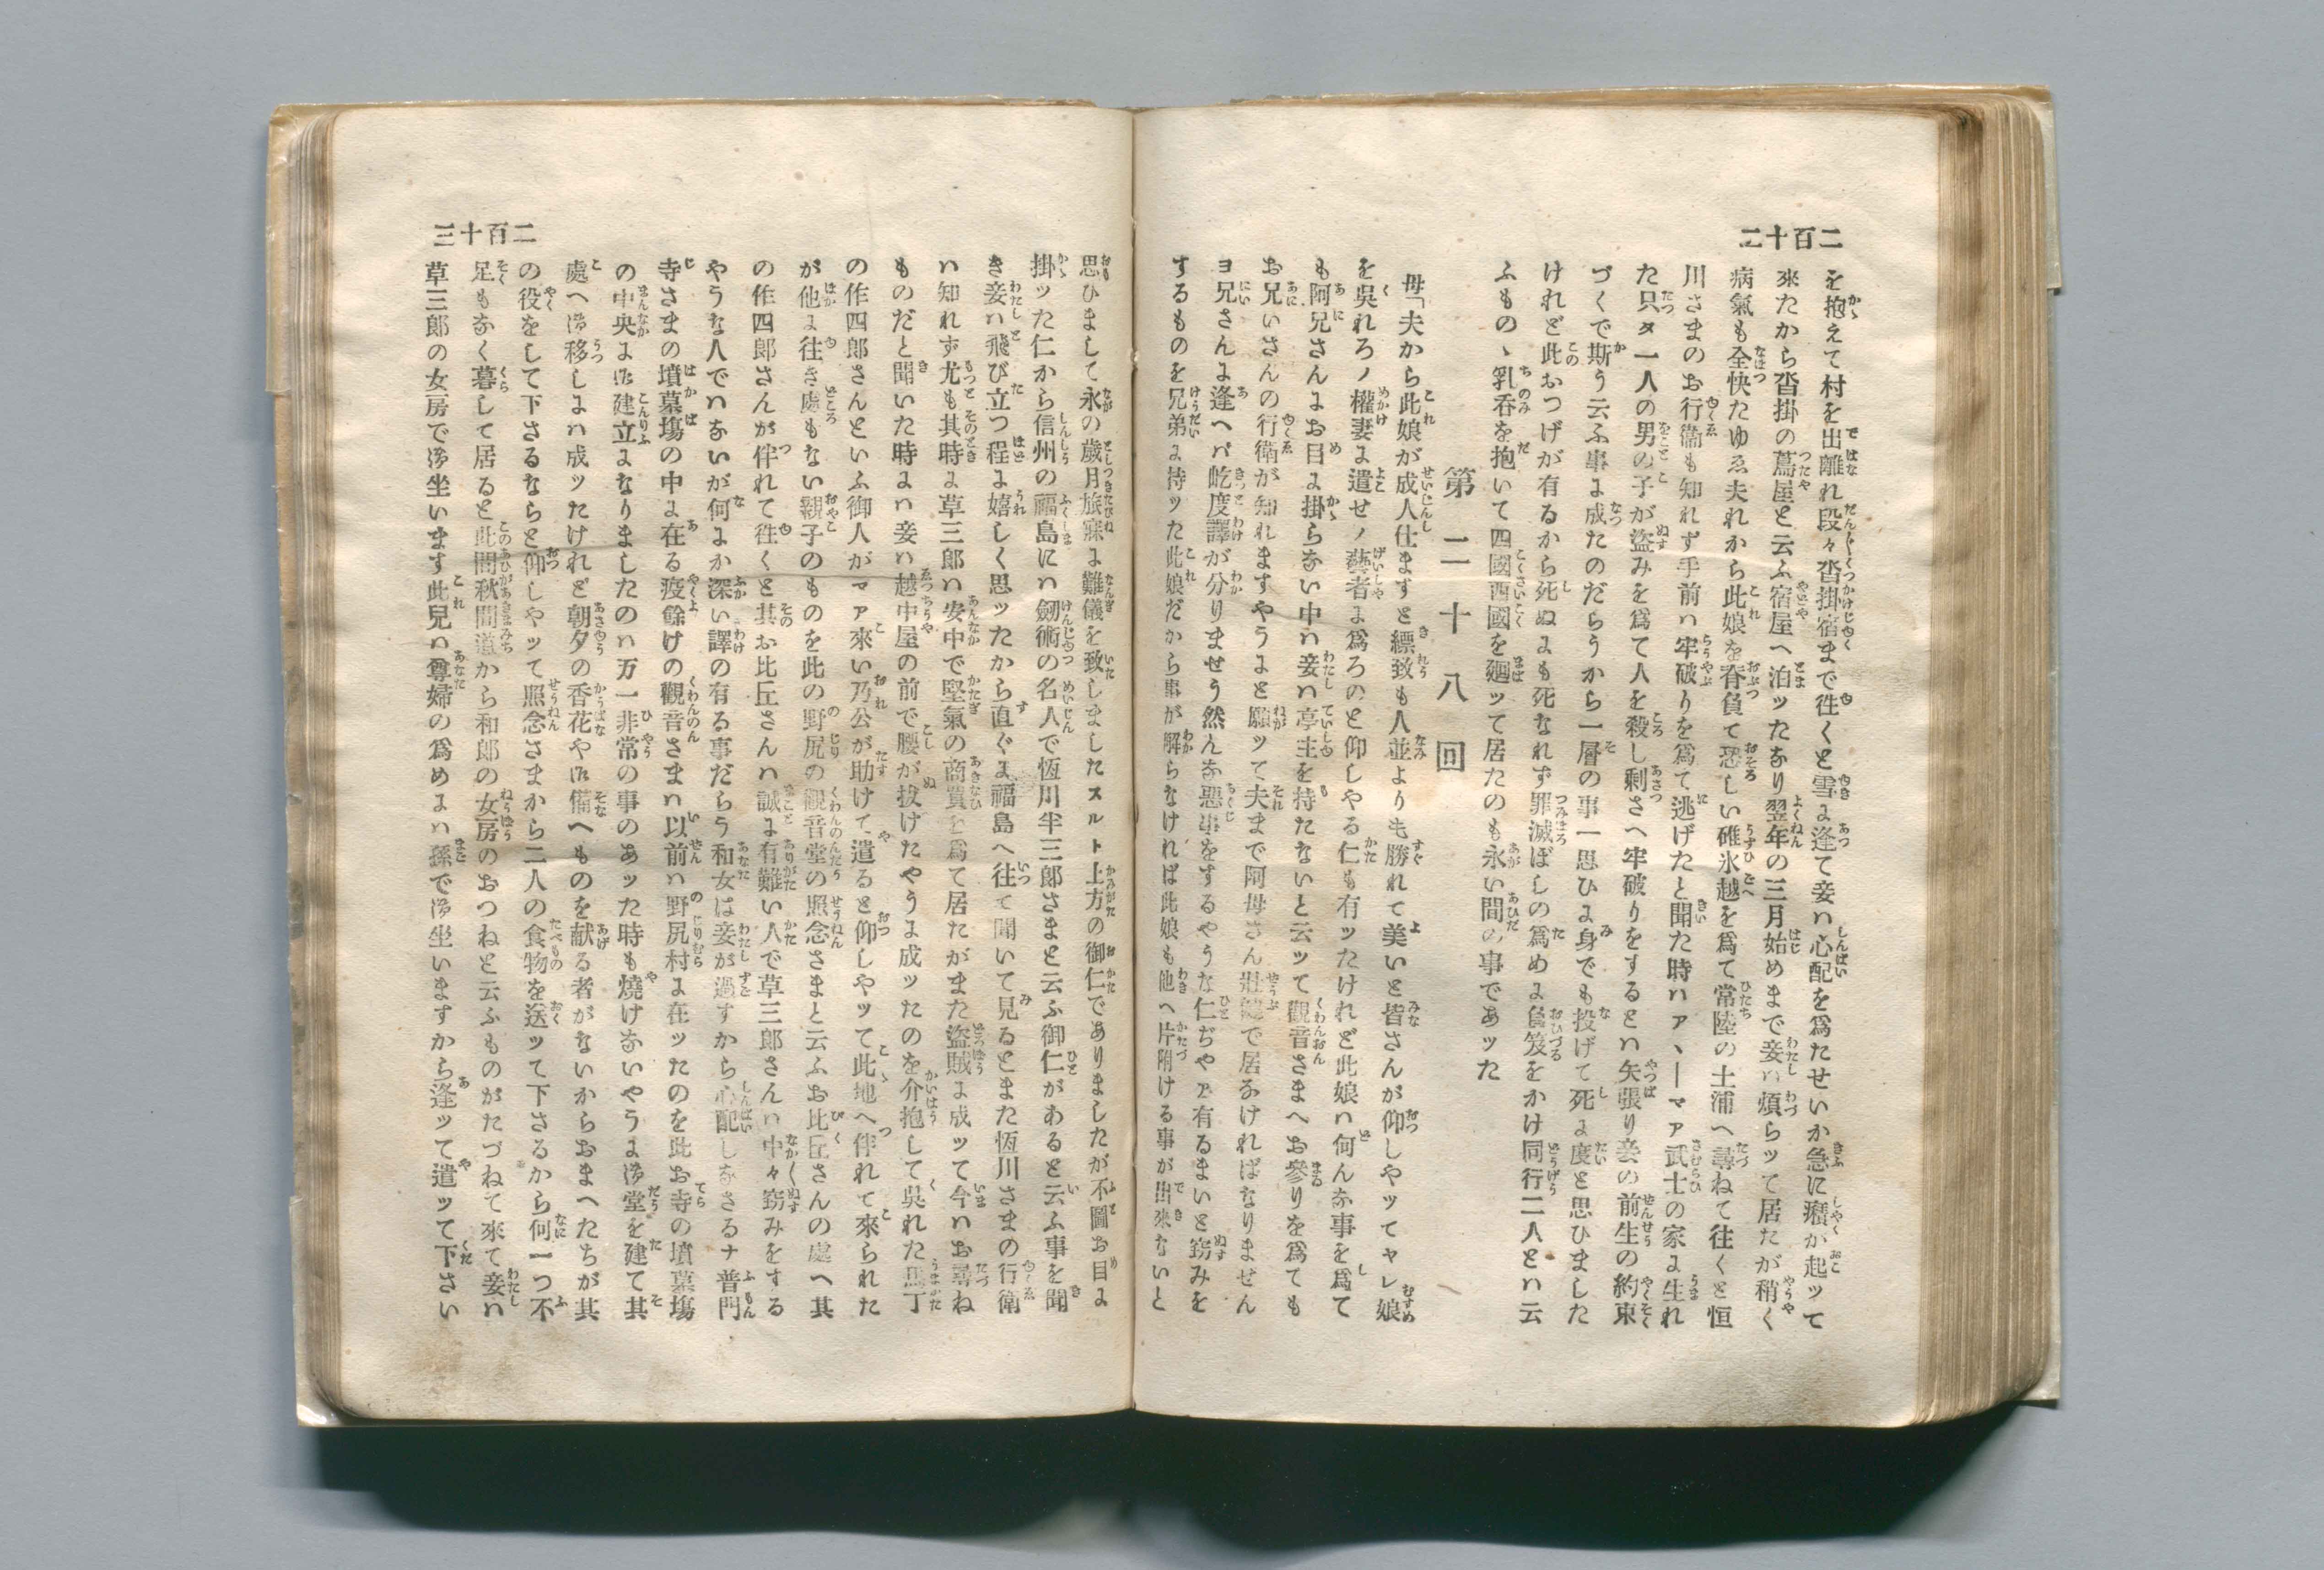 二百十二
を抱えて村を出離れ段々沓掛宿まで徃くと雪に逢て妾ハ心配を爲たせいか急に癪が起ッて
來たから沓掛の蔦屋と云ふ宿屋へ泊ッたなり翌年の三月始めまで妾ハ煩らッて居たが稍く
病氣も全快たゆゑ夫れから此娘を脊負て恐しい碓氷越を爲て常陸の土浦へ尋ねて徃くと恒
川さまのお行衞も知れず手前ハ牢破りを爲て逃げたと聞た時ハア、―マア武士の家に生れ
た只タ一人の男の子が盜みを爲て人を殺し剩さへ牢破りをするとハ矢張り妾の前生の約束
づくで斯う云ふ事に成たのだらうから一層の事一思ひに身でも投げて死に度と思ひました
けれど此おつげが有るから死ぬにも死なれず罪滅ぼしの爲めに負笈をかけ同行二人とハ云
ふもの、乳呑を抱いて四國西國を廻ッて居たのも永い間の事であッた
第二十八回
母「夫から此娘が成人仕ますと縹致も人並よりも勝れて美いと皆さんが仰しやッてヤレ娘
を呉れろノ權妻に遣せノ藝者に爲ろのと仰しやる仁も有ッたけれど此娘ハ何んな事を爲て
も阿兄さんにお目に掛らない中ハ妾ハ亭主を持たないと云ッて觀音さまへお參りを爲ても
お兄いさんの行衞が知れますやうにと願ッて夫まで阿母さん壯健で居なければなりません
ヨ兄さんに逢へバ屹度譯が分りませう然んな惡事をするやうな仁ぢやア有るまいと窃みを
するものを兄弟に持ッた此娘だから事が解らなければ此娘も他へ片附ける事が出來ないと
二百十三
思ひまして永の歳月旅寐に難儀を致しましたスルト上方の御仁でありましたが不圖お目に
掛ッた仁から信州の福島にハ劔術の名人で恆川半三郎さまと云ふ御仁があると云ふ事を聞
き妾ハ飛び立つ程に嬉しく思ッたから直ぐに福島へ徃て聞いて見るとまた恆川さまの行衞
ハ知れず尤も其時に草三郎ハ安中で堅氣の商買を爲て居たがまた盜賊に成ッて今ハお尋ね
ものだと聞いた時にハ妾ハ越中屋の前で腰が拔けたやうに成ッたのを介抱して呉れた馬丁
の作四郎さんといふ御人がマア來い乃公が助けて遣ると仰しやッて此地へ伴れて來られた
が他に徃き處もない親子のものを此の野尻の觀音堂の照念さまと云ふお比丘さんの處へ其
の作四郎さんが伴れて徃くと其お比丘さんハ誠に有難い人で草三郎さんハ中々窃みをする
やうな人でハないが何にか深い譯の有る事だらう和女は妾が過すから心配しなさるナ普門
寺さまの墳墓塲の中に在る疫餘けの觀音さまハ以前ハ野尻村に在ッたのを此お寺の墳墓塲
の中央に御建立になりましたのハ万一非常の事のあッた時も燒けないやうに御堂を建て其
處へ御移しにハ成ッたけれど朝夕の香花や御備へものを献る者がないからおまへたちが其
の役をして下さるならと仰しやッて照念さまから二人の食物を送ッて下さるから何一つ不
足もなく暮して居ると此間秋間道から和郎の女房のおつねと云ふものがたづねて來て妾ハ
草三郎の女房で御坐います此兒ハ尊婦の爲めにハ孫で御坐いますから逢ッて遣ッて下さい